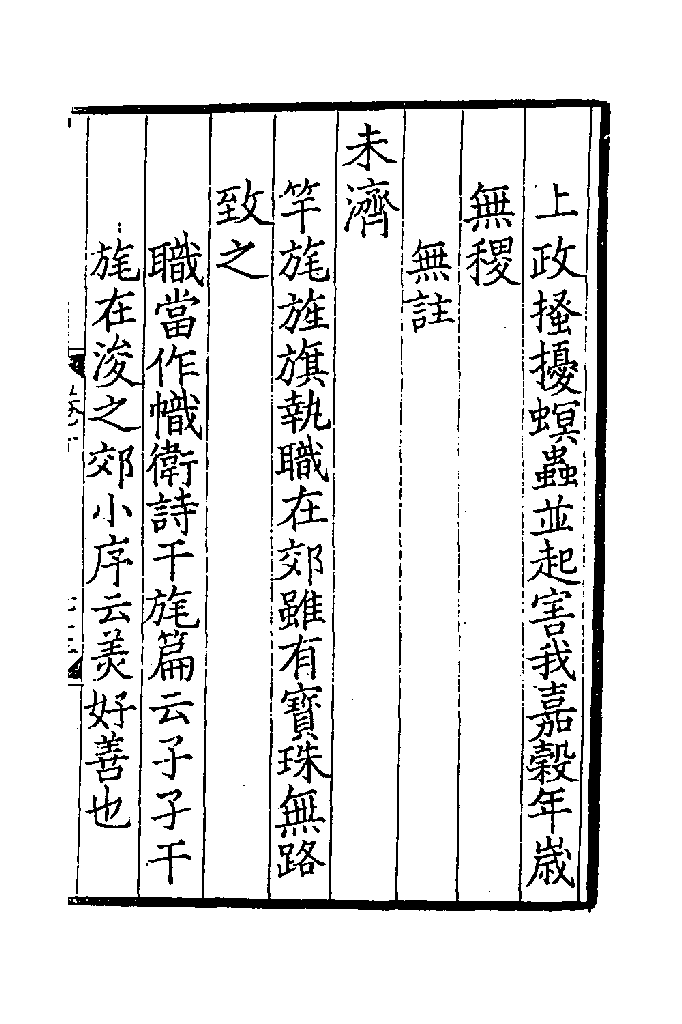 上政搔擾螟蟲並起害我嘉穀年歳
無稷
無註
未濟
竿旄旌旗執職在郊雖有寳珠無路
致之
職當作幟衛詩干旄篇云孑孑干
旄在浚之郊小序云美好善也